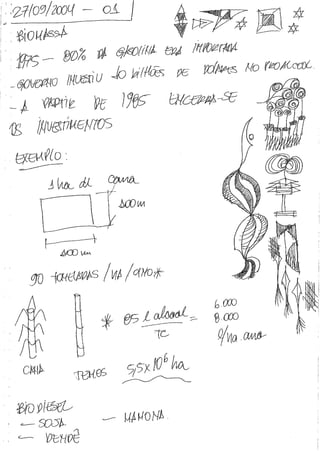 27/09/2004 - 01
BIOMASSA
1975 - 80% DA GASOLINA ERA IMPORTADA
- GOVERNO INVESTIU 10 BILHÕES DE DÓLARES NO PROALCOOL
- A PARTIR DE 1985 ENCERRA-SE
OS INVESTIMENTOS
EXEMPLO:
1 ha de cana
100m
100 m
90 TONELADAS / HA / ANO *
* 85 l alcool =
TC
6.000
8.000
l/ha.ano
CANA
TEMOS 5,5 x 10⁶ ha
BIODIESEL
- SOJA
- MAMONA
- DENDÊ